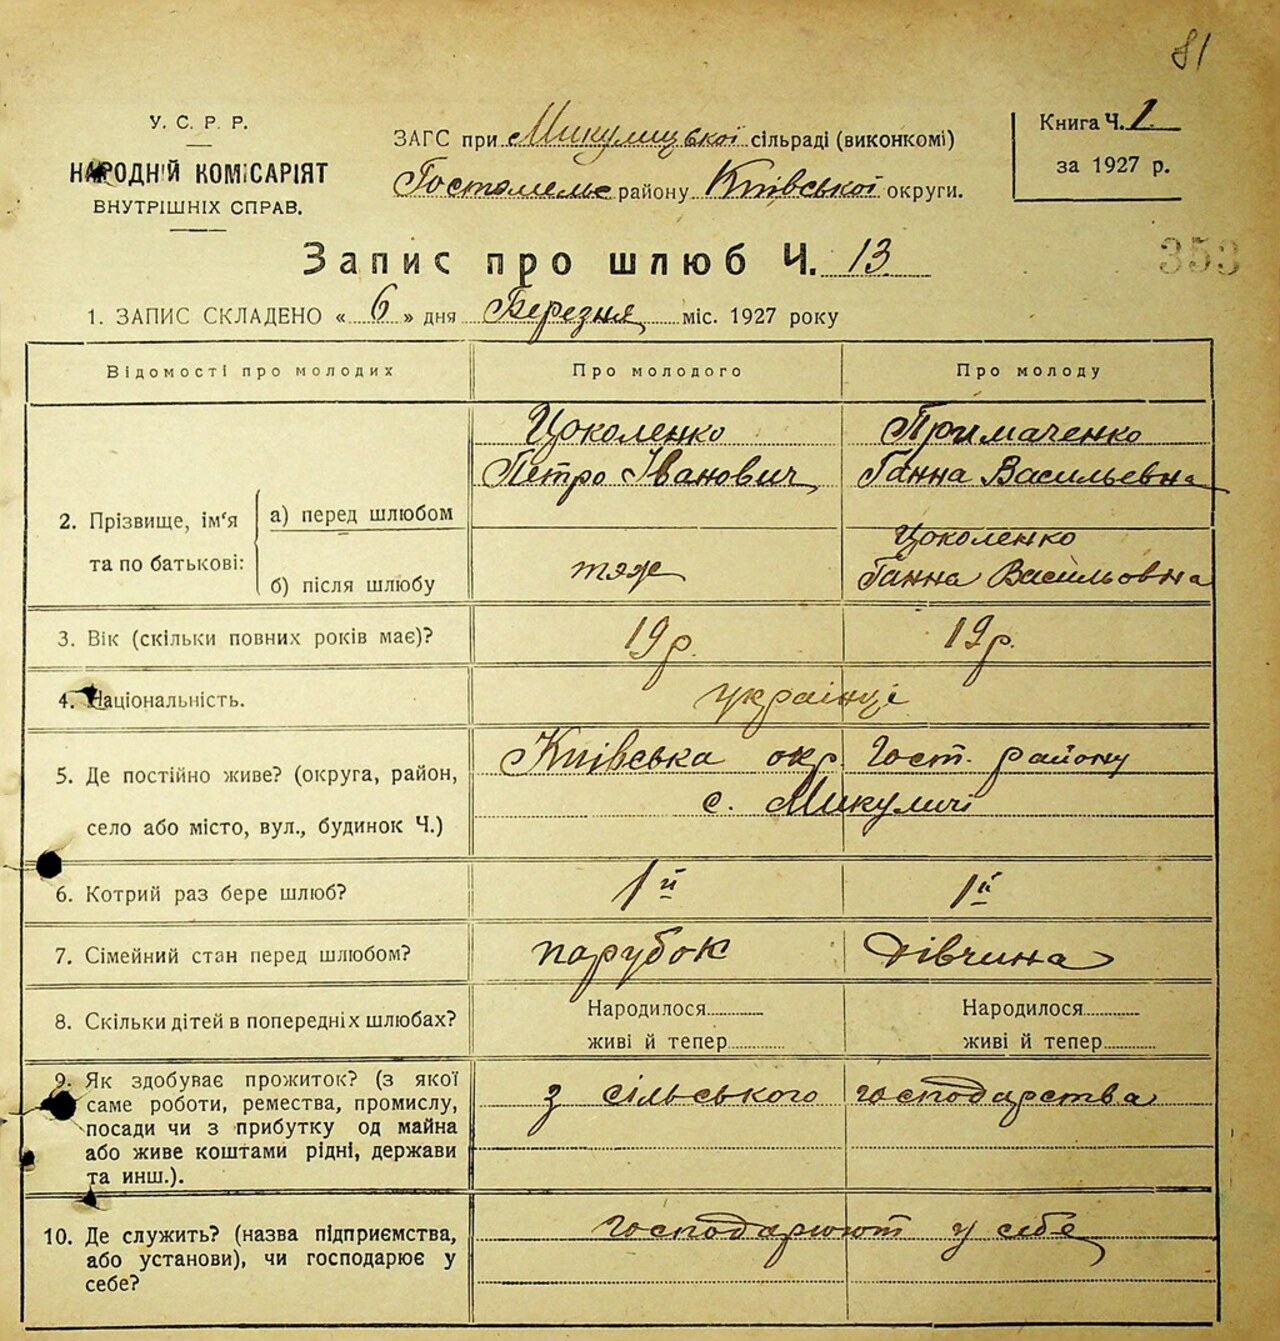 81
У. С. Р. Р.
НАРОДНІЙ КОМІСАРІЯТ
ВНУТРІШНІХ СПРАВ.
ЗАГС при Микулицької сільраді (виконкомі)
Гостомельс району Київської округи.
Книга Ч. 1
за 1927 р.
353
Запис про шлюб Ч. 13
1. ЗАПИС СКЛАДЕНО « 6 » дня Березня міс. 1927 року
Відомості про молодих Про молодого Про молоду
2. Прізвище, ім'я та по батькові:
а) перед шлюбом
Цоколенко
Петро Іванович
Примаченко
Ганна Васильевна
б) після шлюбу
теж
Цоколенко
Ганна Васильовна
3. Вік (скільки повних років має)? 19 р. 19 р.
4. Національність. українці
5. Де постійно живе? (округа, район,
село або місто, вул., будинок Ч.)
Київська окр. Гост. району
с. Микуличі
6. Котрий раз бере шлюб? 1й 1й
7. Сімейний стан перед шлюбом? парубок дівчина
8. Скільки дітей в попередніх шлюбах?
Народилося
живі й тепер
Народилося
живі й тепер
9. Як здобуває прожиток? (з якої
саме роботи, ремества, промислу,
посади чи з прибутку од майна
або живе коштами рідні, держави
та инш.).
з сільського господарства
10. Де служить? (назва підприємства,
або установи), чи господарює у
себе?
господарюют у себе